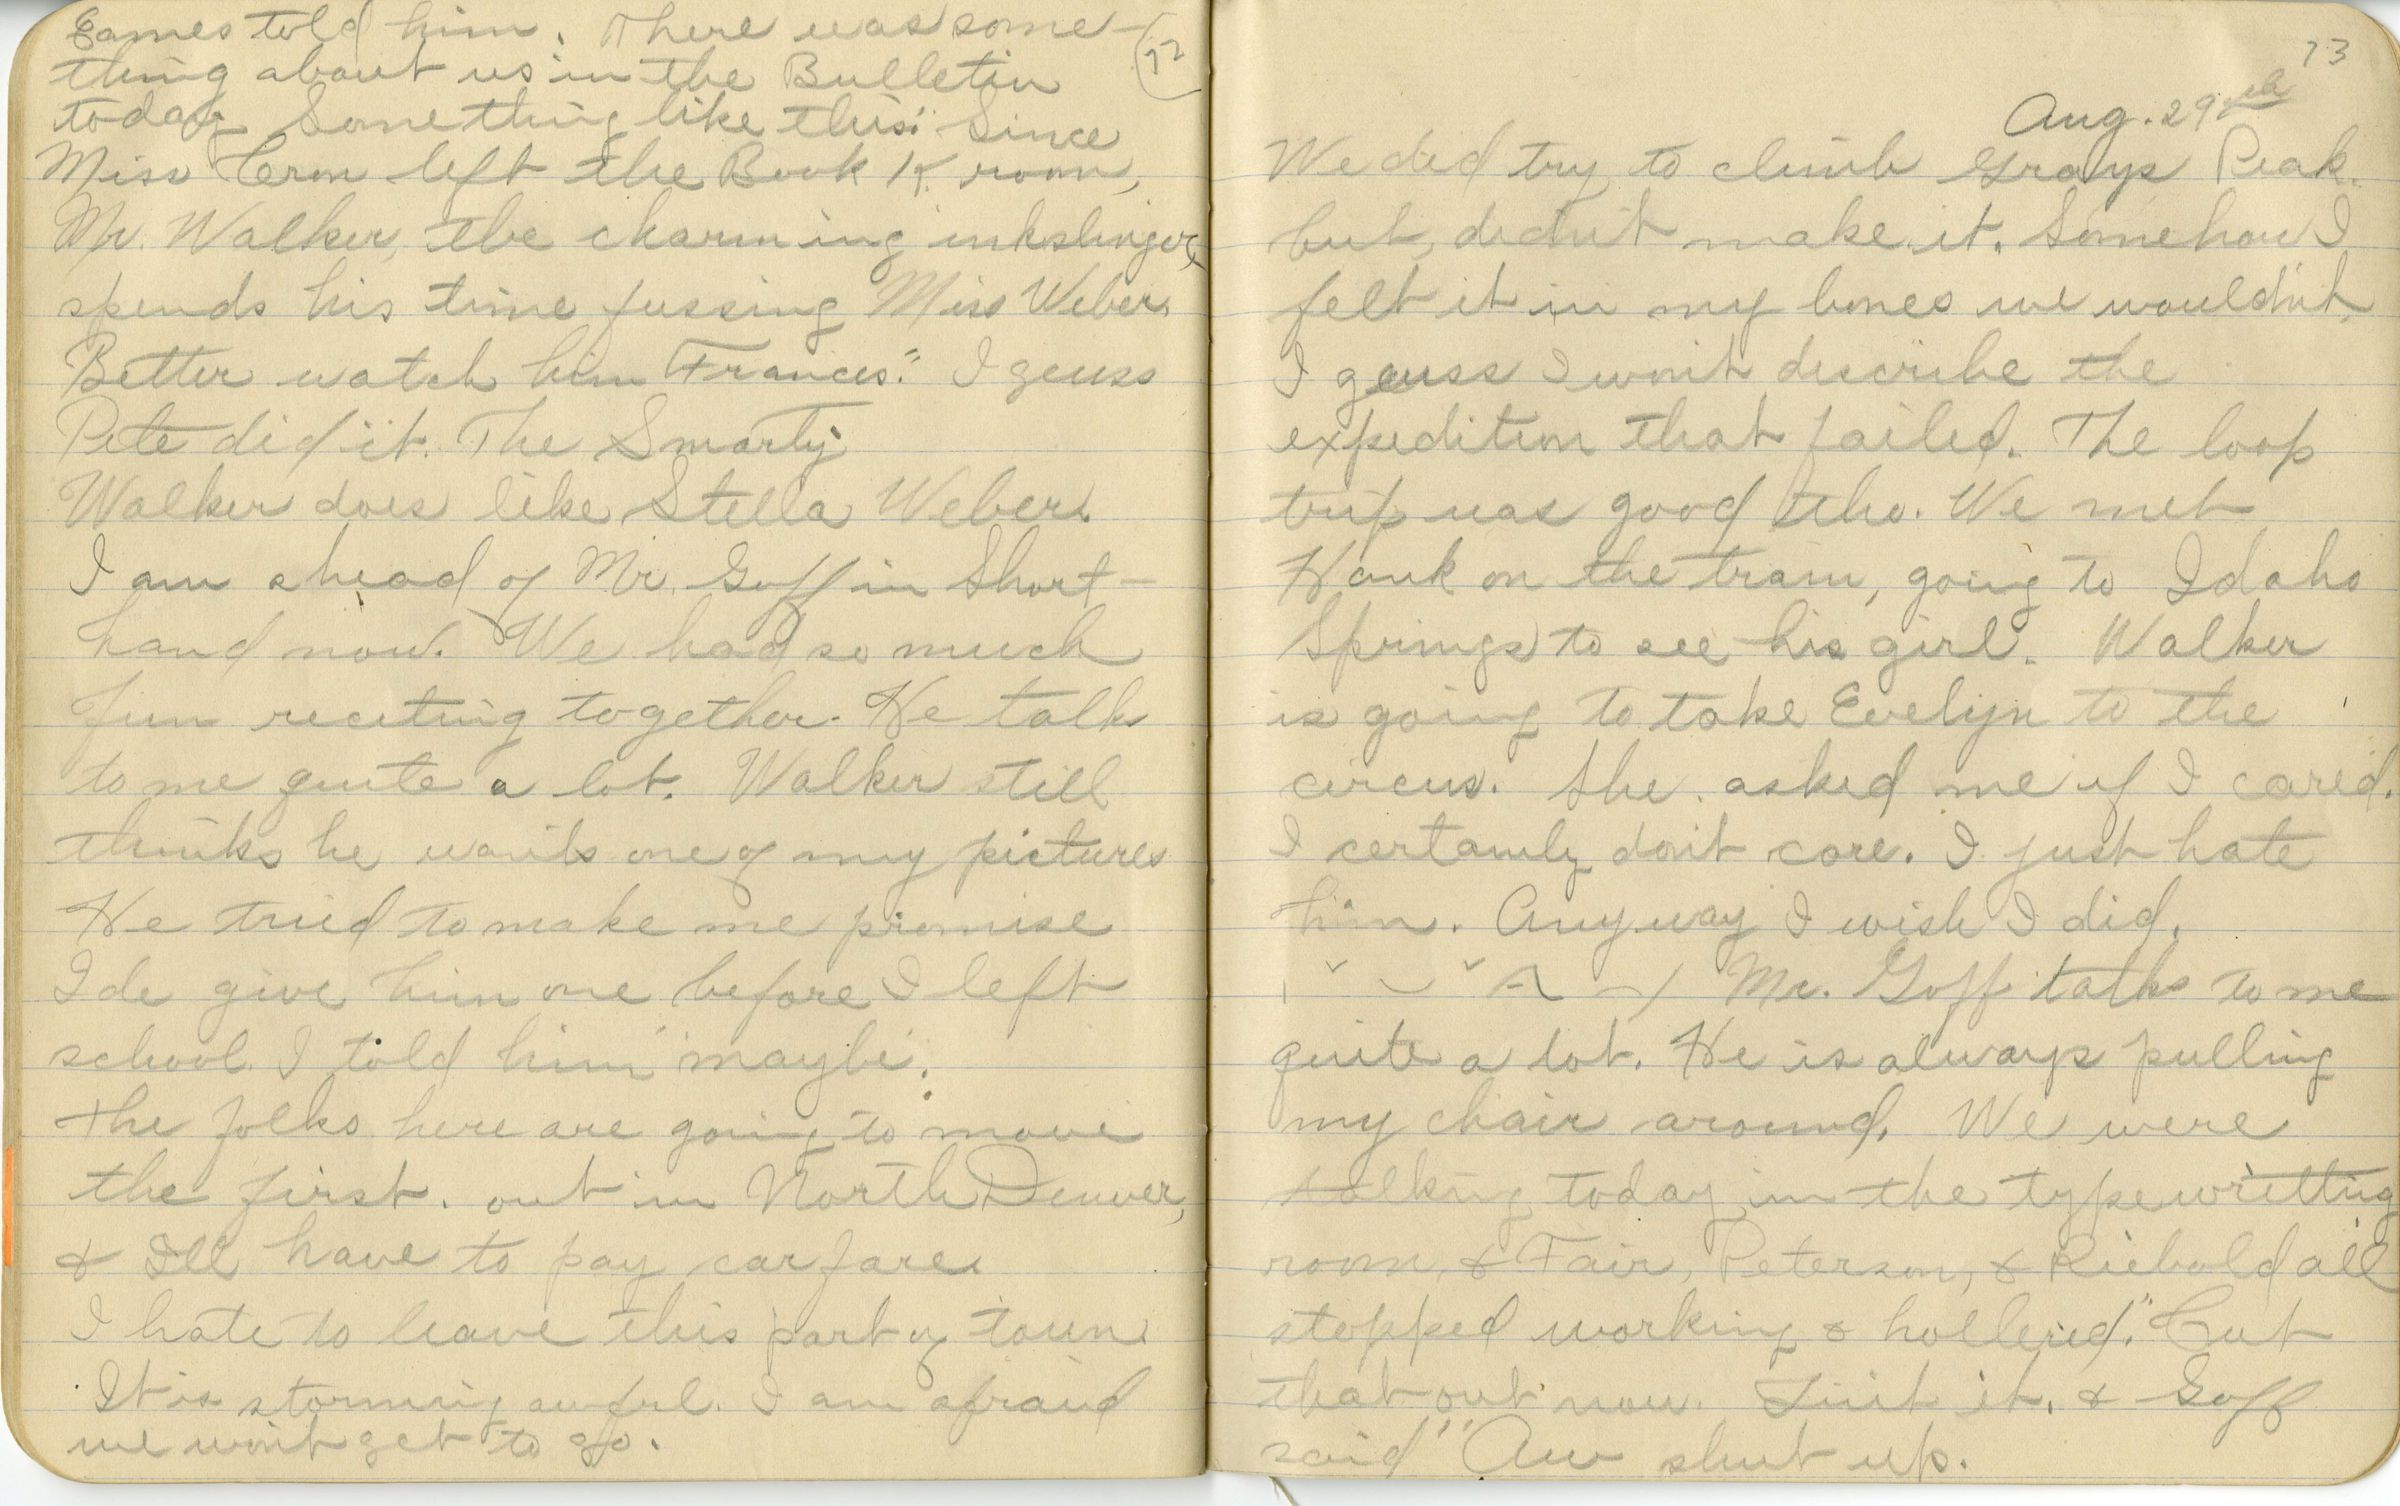 Eames told him. There was some-
72
thing about us in the Bulletin
today Something like this: "Since
Miss left the Book K. room,
Mr. Walker, the charming inkslinger,
spends his time fussing Miss Weber.
Better watch him Frances." I geuss
Pete did it. The Smarty
Walker does like Stella Weber.
I am ahead of Mr. Goff in Short-
hand now. We had so much
fun reciting together. He talks
to me quite a lot. Walker still
thinks he wants one of my pictures
He tried to make me promise
I'de give him one before I left
school. I told him "maybe".
The folks here are going to move
the first. out in North Denver,
& I'll have to pay carfare.
I hate to leave this part of town.
It is storming awful. I am afraid
we won't get to go.
73
Aug. 29th
We did try to climb Grays Peak.
but, didn't make it. Somehow I
felt it in my bones we wouldn't.
I geuss I won't describe the
expedition that failed. The loop
trip was good tho. We met
Hank on the train, going to Idaho
Springs to see his girl. Walker
is going to take Evelyn to the
circus. She asked me if I cared.
I certainly don't care. I just hate
him. Anyway I wish I did.
Mr. Goff talks to me
quite a lot. He is always pulling
my chair around. We were
talking today in the typewritting
room, & Fair, Peterson, & Riebold all
stopped working & hollered, "Cut
that out now. Quit it. & Goff
said "Aw shut up.